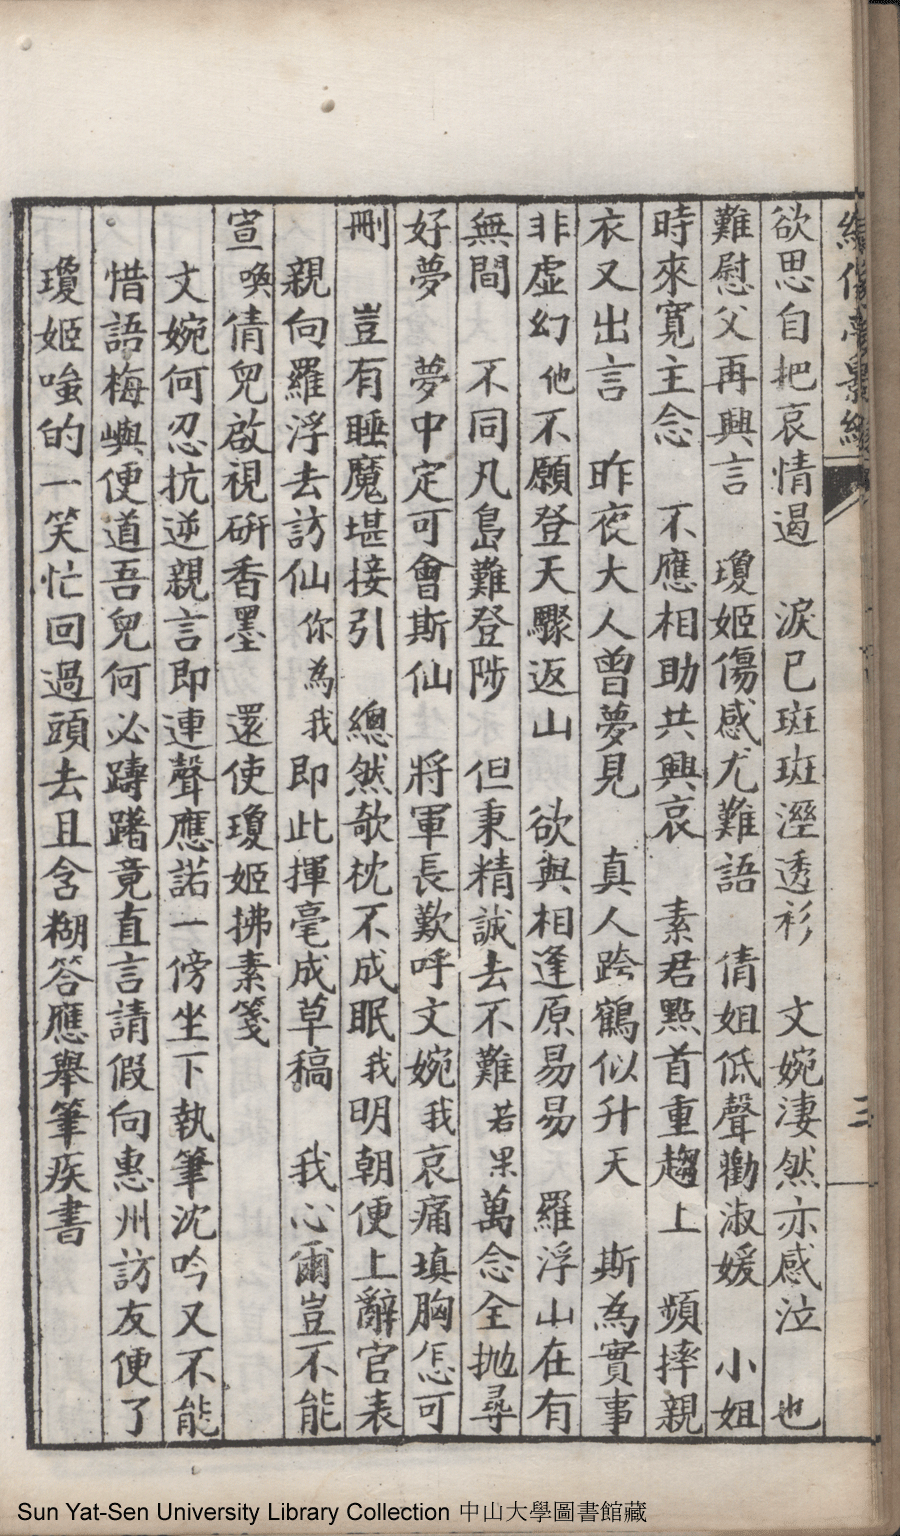 欲思自把哀情遏　淚已斑斑溼透衫　文婉淒然亦感泣　也
難慰父再興言　瓊姬傷感尤難語　倩姐低聲勸淑媛　小姐
時來寬主念　不應相助共興哀　素君點首重趨上　頻捧親
衣又出言　昨夜大人曾夢見　真人跨鶴似升天　斯為實事
非虛幻他不願登天驟返山　欲與相逢原易易　羅浮山在有
無間　不同凡島難登陟　但秉精誠去不難若果萬念全拋尋
好夢　夢中定可會斯仙　將軍長歎呼文婉我哀痛填胸怎可
刪　豈有睡魔堪接引　總然欹枕不成眠我明朝便上辭官表
親向羅浮去訪仙你為我即此揮毫成草稿　我心爾豈不能
宣喚倩兒啟視研香墨　還使瓊姬拂素箋
文婉何忍抗逆親言即連聲應諾一傍坐下執筆沈吟又不能
惜語梅嶼便道吾兒何必躊躇竟直言請假向惠州訪友便了
瓊姬嗤的一笑忙回過頭去且含糊答應舉筆疾書
Sun Yat-Sen University Library Collection 中山大學圖書館藏